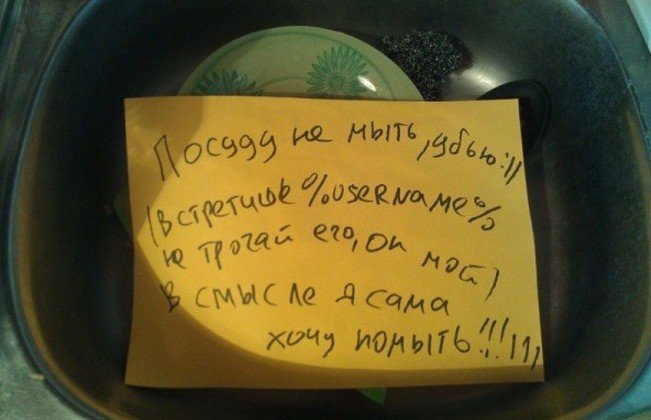 Посуду не мыть, убью:))
(встретишь %username%
не трогай его, он мой)
В смысле я сама
хочу помыть!!!111,